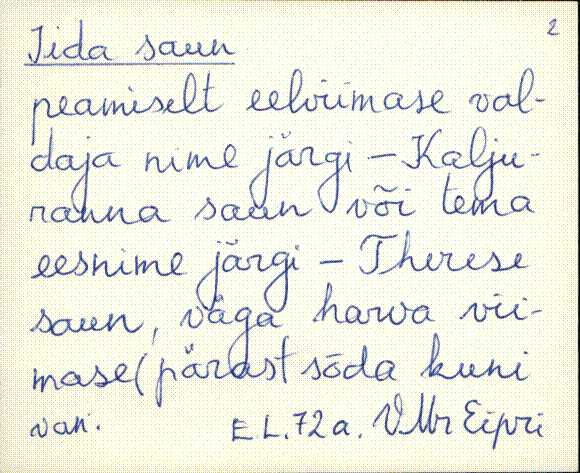 2
Iida saun
peamiselt eelviimase val-
daja nime järgi – Kalju-
ranna saun või tema
eesnime järgi – Therese
saun, väga harva vii-
mase (pärast sõda kuni
E.L. 72 a. VMr Eipri